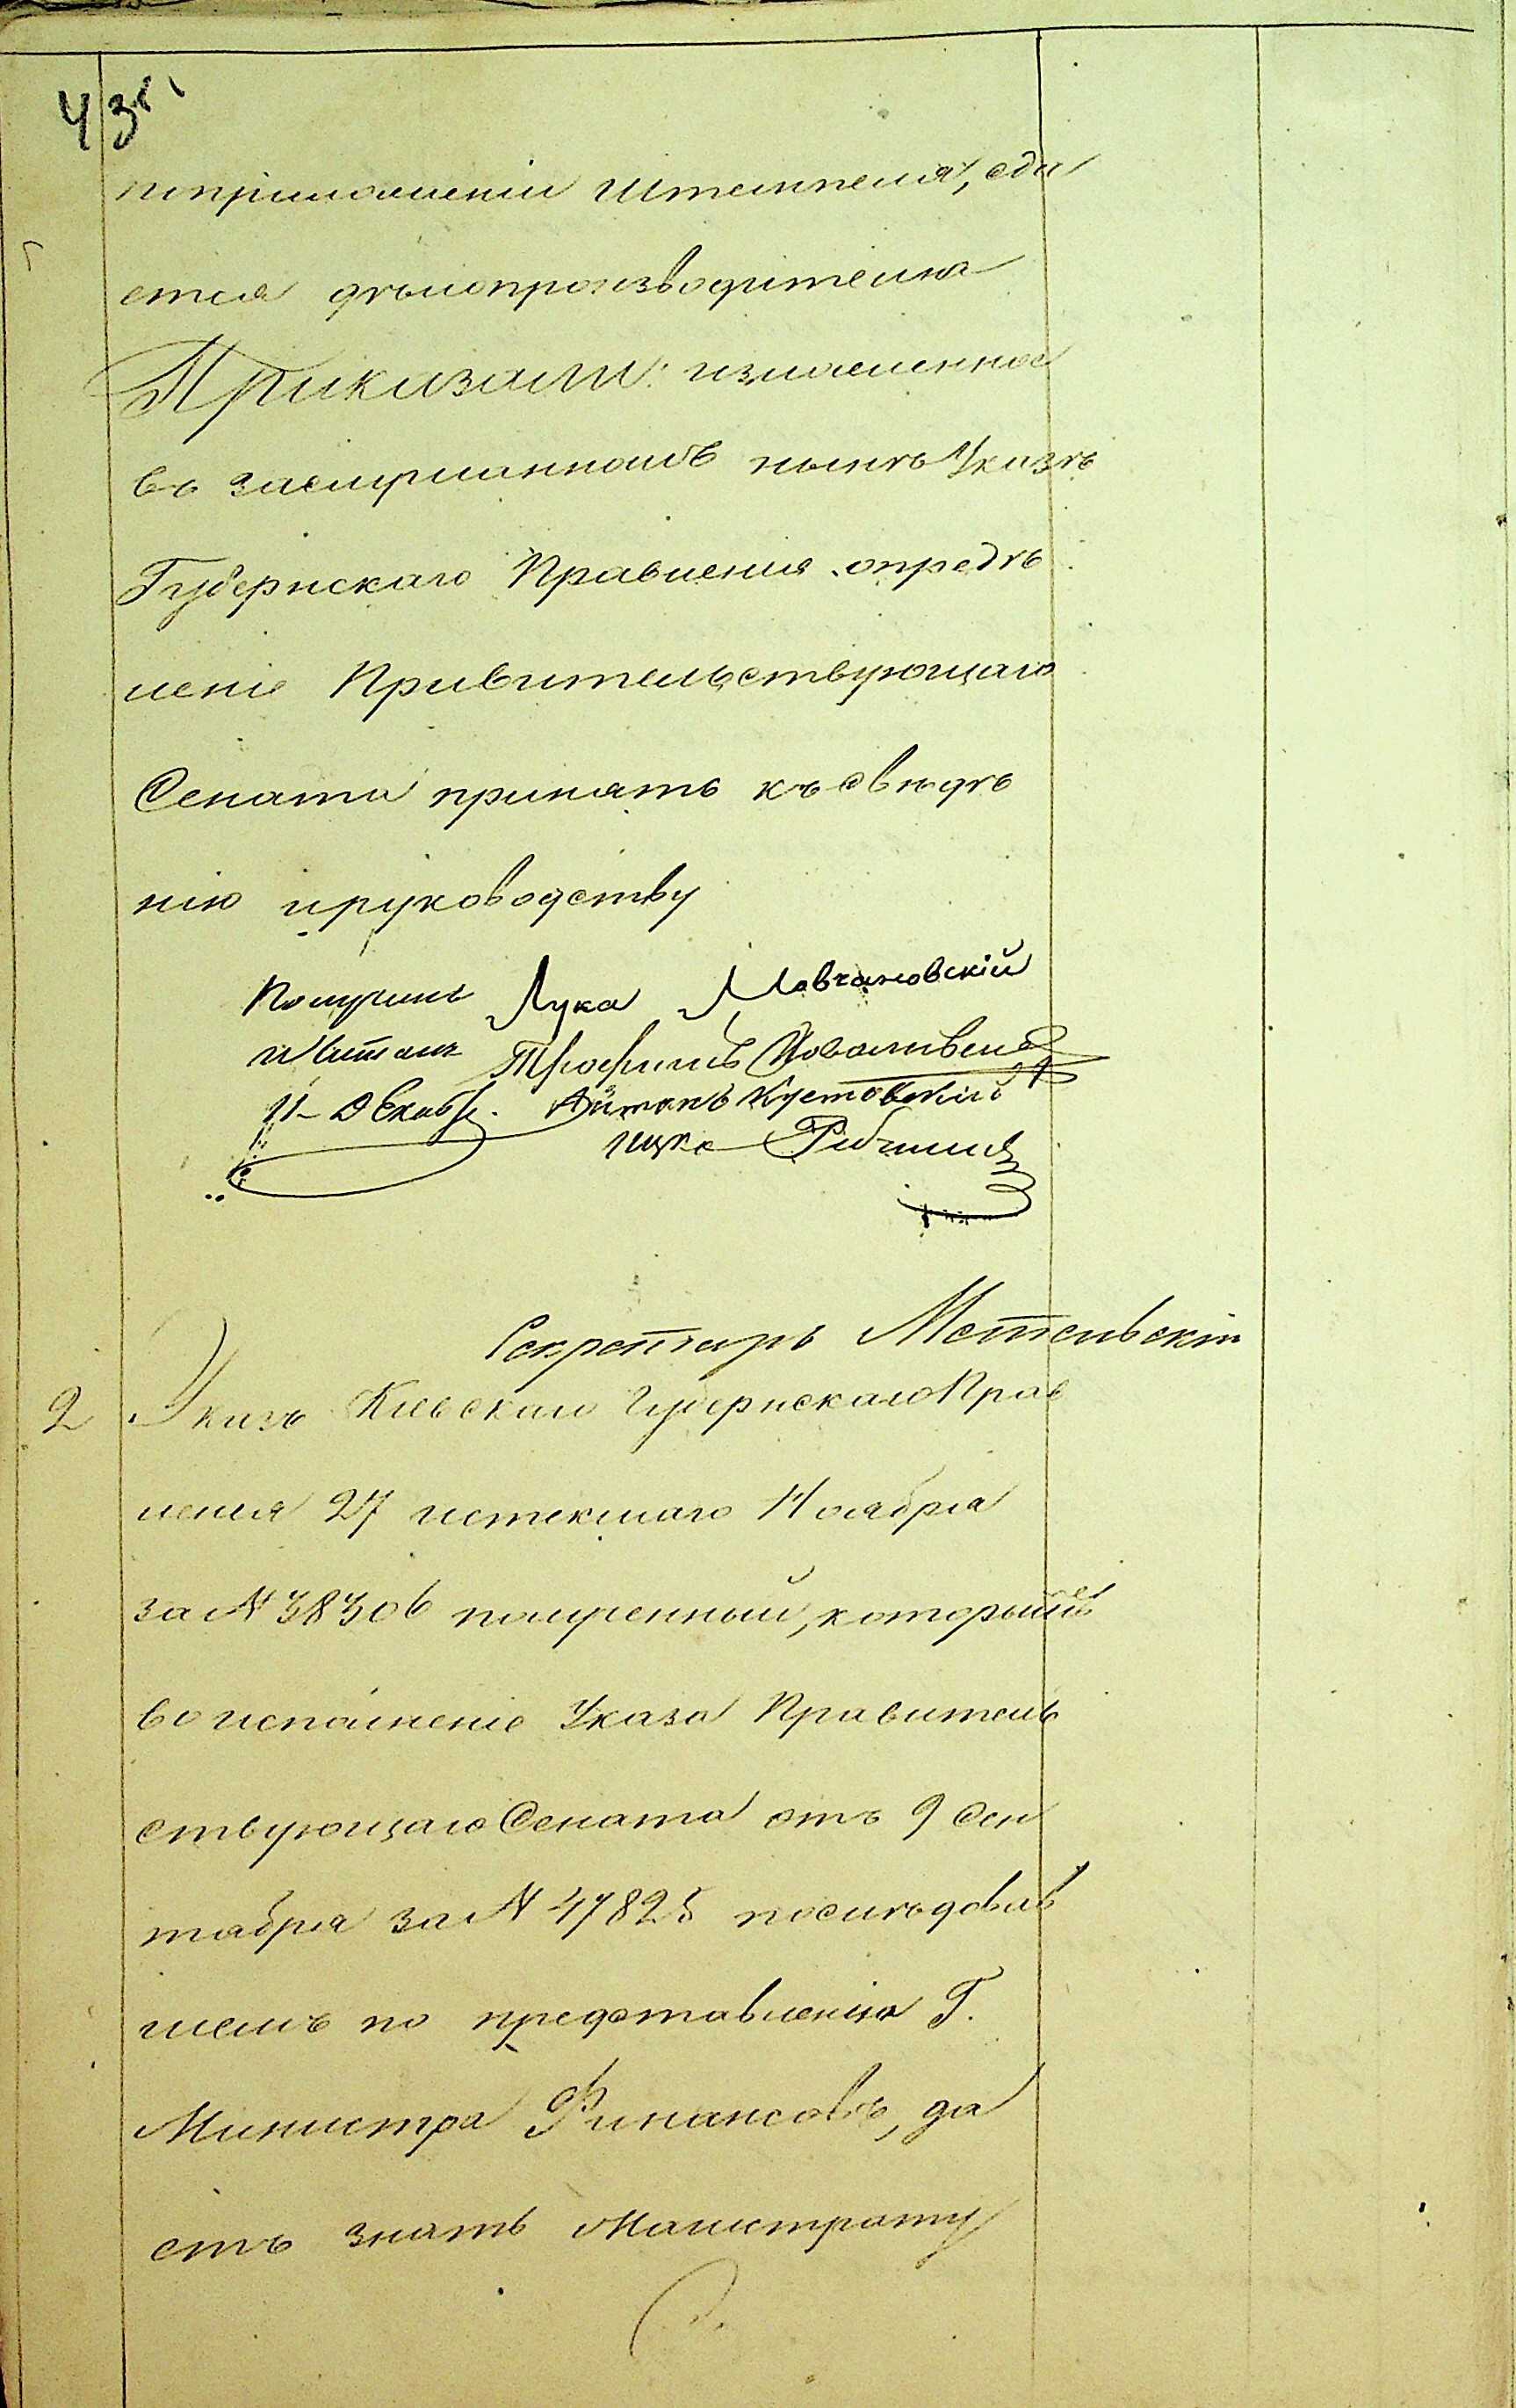 43
поприложеніи Штемпеля, сда
ется дѣлопроизводителю
Приказали: изложенное
въ заслушанномъ нынѣ Указѣ
Губернскаго Правленія опредѣ
леніе Правительствующаго
Сената принять къ свѣдѣ
нію и руководству
Лука Мовчановскій
Трофимъ
11 Декабр.
Секретарь
2 Указъ Кіевскаго Губернскаго Прав
ленія 27 истекшаго Ноября
за № 38306 полученный, которымъ
во исполненіе Указа Правитель
ствующаго Сената отъ 9 Сен
тября за № 47825 послѣдовав
шемъ по представленію Г.
Министра Финансовъ, да
етъ знать Магистрату